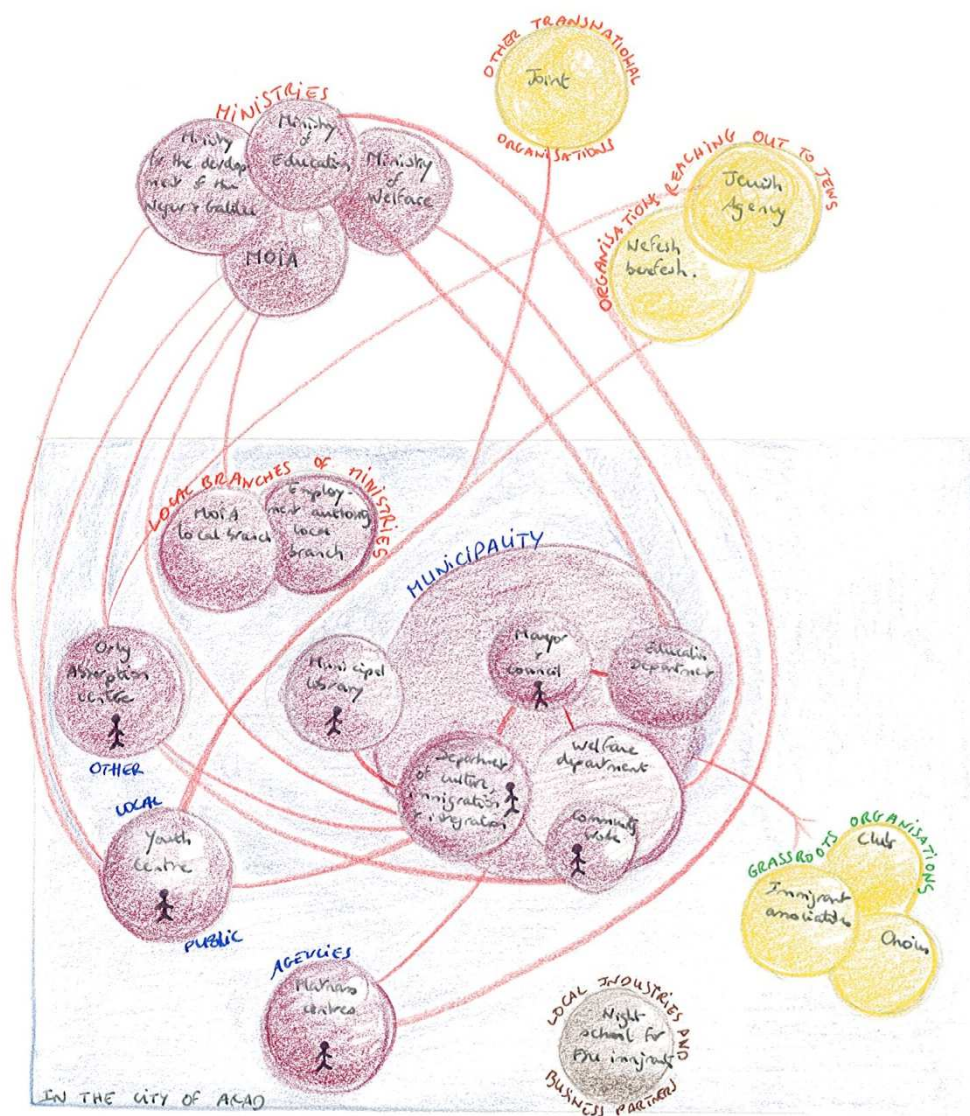 OTHER TRANSNATIONAL
ORGANISATIONS
Joint
MINISTRIES
Ministry
for the develop
ment of the
Negev & Galilee
Ministry
of
Education
Ministry
of
Welfare
MOIA
ORGANISATIONS REACHING OUT TO JEWS
Jewish
Agency
Nefesh
benefesh.
LOCAL BRANCHES OF MINISTRIES
MOIA
local branch
Employ-
ment
local
branch
MUNICIPALITY
Mayor
&
council
Education
department
Municipal
library
Department
of culture,
immigration
& integration
Welfare
department
Community
work
Absorption
centre
OTHER
LOCAL
PUBLIC
AGENCIES
Youth
centre
centres
GRASSROOTS ORGANISATIONS
Clubs
Immigrant
associations
Choirs
LOCAL INDUSTRIES AND
BUSINESS PARTNERS
Night
school for
immigrants
IN THE CITY OF ARAD